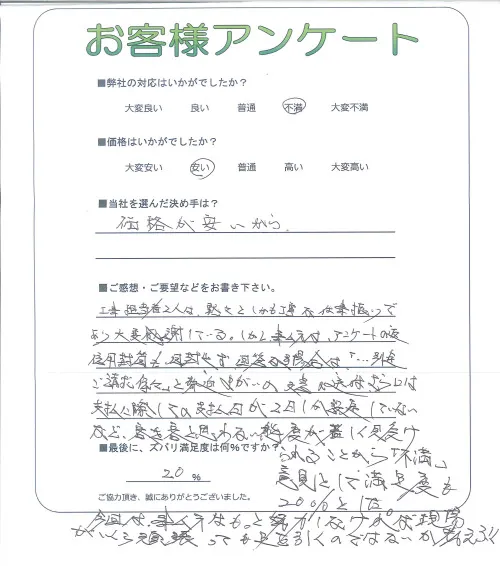 お客様アンケート
■弊社の対応はいかがでしたか？
大変良い 良い 普通 不満 大変不満
■価格はいかがでしたか？
大変安い 安い 普通 高い 大変高い
■当社を選んだ決め手は？
価格が安いから.
■ご感想・ご要望などをお書き下さい。
工事担当者2人は、黙々としかも丁寧な仕事振りで
あり大変感謝している。しかし事ム方は、アンケートの返
信用封筒も同封せず、
ご請求
支払に際しての支払日が2日しか
など、客を客と思わない態度が著しく見受け
■最後に、ズバリ満足度は何％ですか？
られることから「不満」
20 %
意見として満足度も
20%とした。
ご協力頂き、誠にありがとうございました。
今回は、事ム方はもっと努力しなければ現場
がいくら頑張っても足を引くのではないか